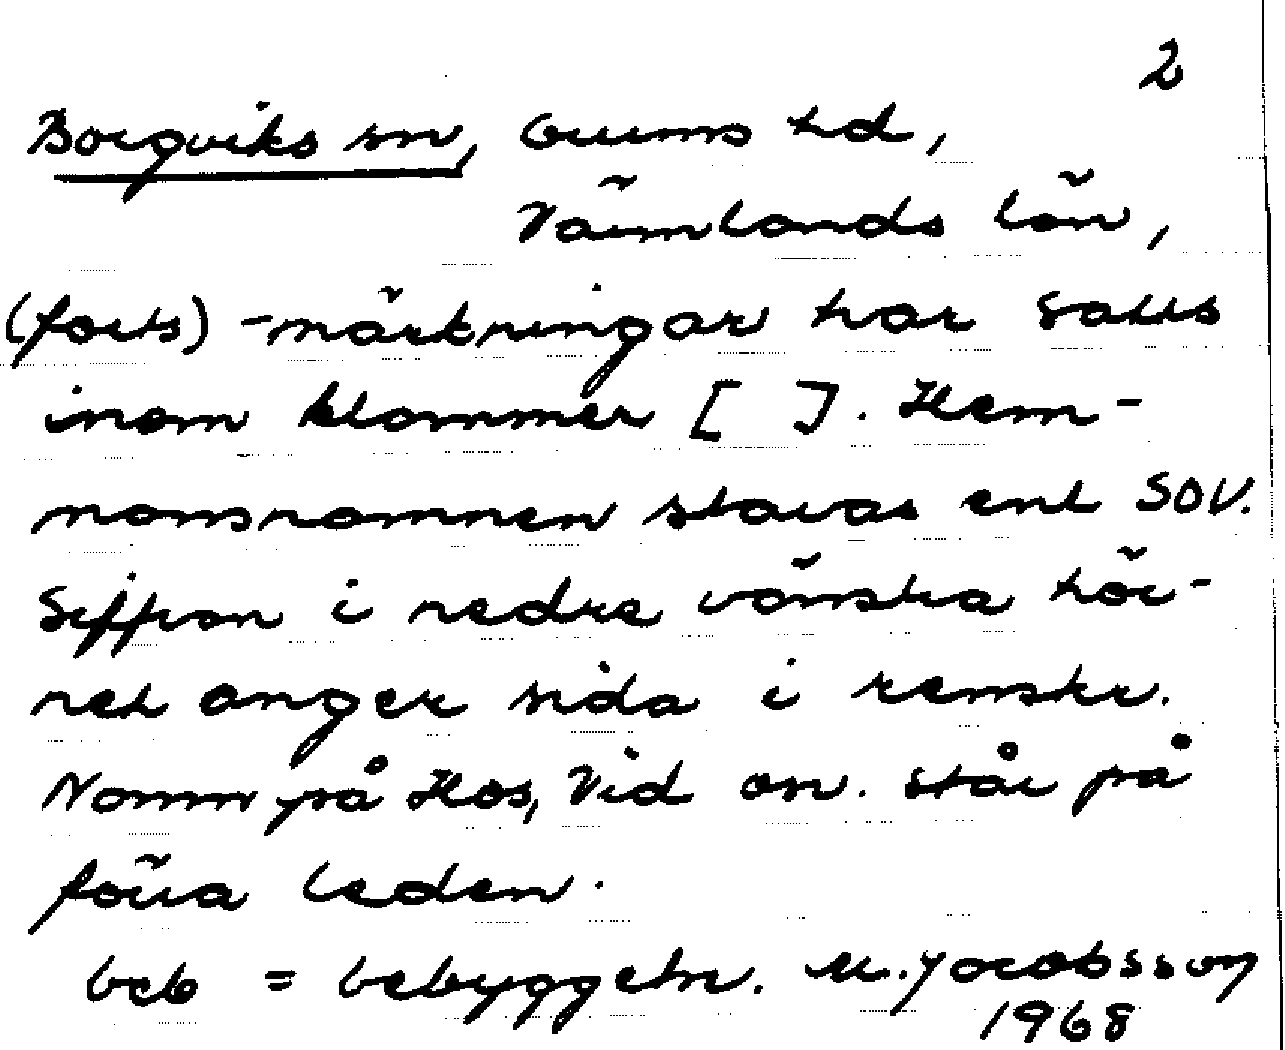 2
Borgviks sn, Grums hd,
Värmlands län,
(forts) -märkningar har satts
inom klammer [ ]. Hem-
mansnamnen stavas enl SOV.
Siffran i nedre vänstra hör-
net anger sida i renskr.
Namn på Hos, Vid osv. står på
förra leden.
beb = bebyggelse. M. Jacobsson
1968